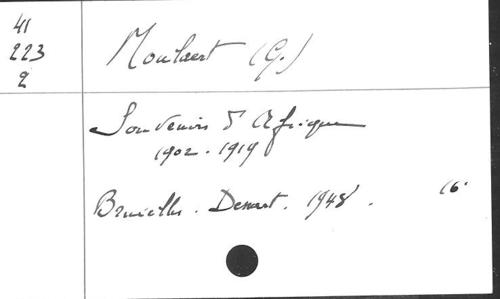 41
223
2
Moulaert (G.)
Souvenirs d'Afrique
1902-1919
Bruxelles. Dessart. 1948.
16°